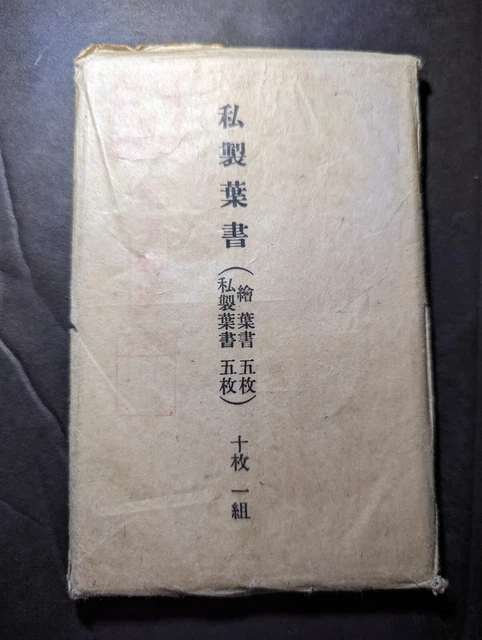 私製葉書
(繪葉書 五枚
私製葉書 五枚)
十枚 一組